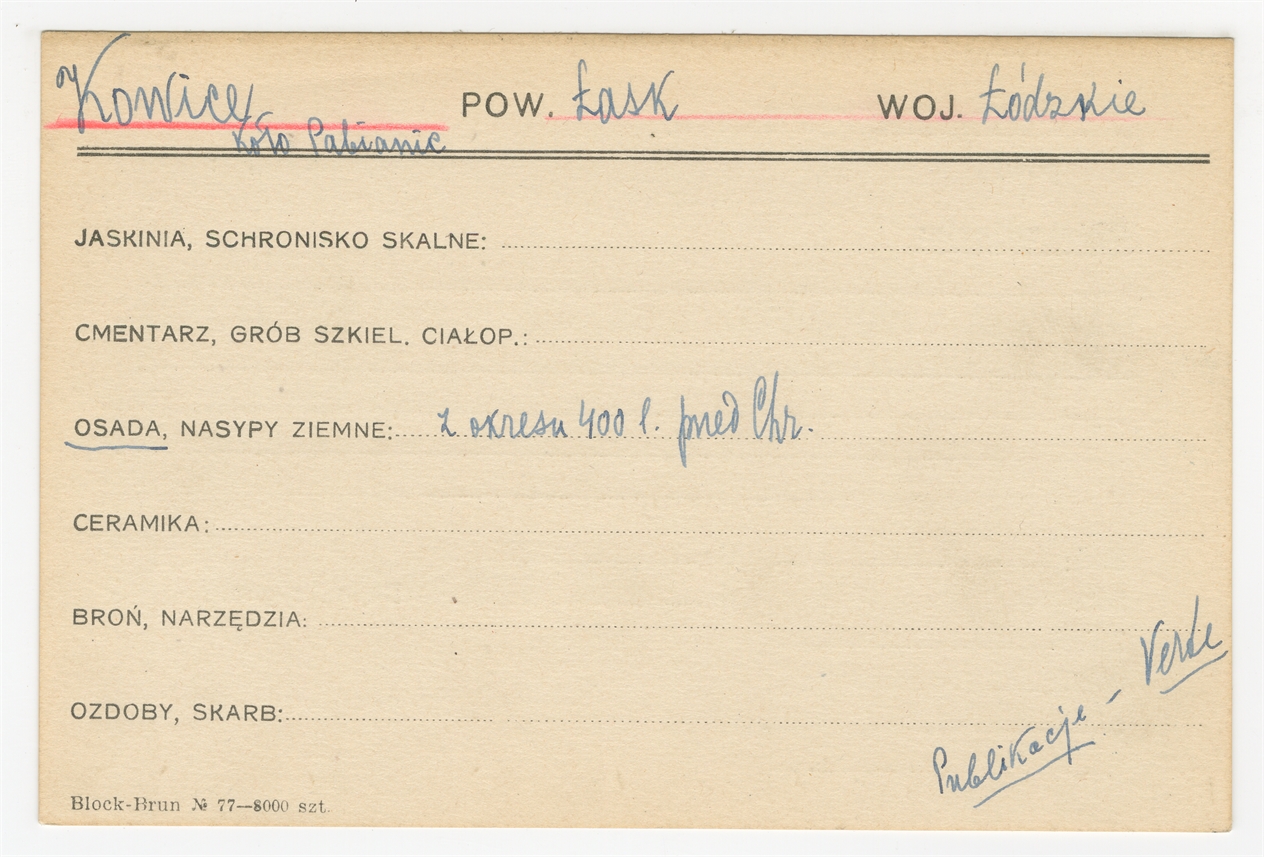 Kowice POW. Łask WOJ. Łódzkie
koło Pabianic
JASKINIA, SCHRONISKO SKALNE:
CMENTARZ, GRÓB SZKIEL. CIAŁOP.:
OSADA, NASYPY ZIEMNE: z okresu 400 l. przed Chr.
CERAMIKA:
BROŃ, NARZĘDZIA:
OZDOBY, SKARB:
Publikacje - Verte
Block-Brun № 77—8000 szt.